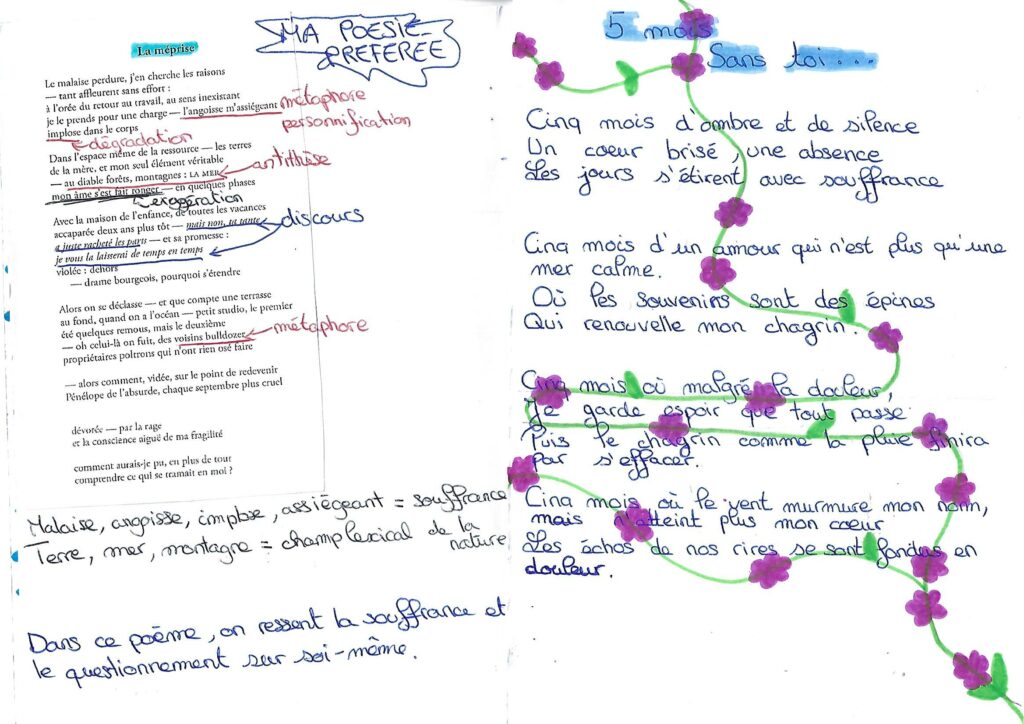 La méprise
MA POESIE
PREFEREE
Le malaise perdure, j'en cherche les raisons
— tant affleurent sans effort :
à l'orée du retour au travail, au sens inexistant
je le prends pour une charge — l'angoisse m'assiégeant
métaphore
personnification
implose dans le corps
dégradation
Dans l'espace même de la ressource — les terres
de la mère, et mon seul élément véritable
— au diable forêts, montagnes : LA MER
antithèse
mon âme s'est fait ronger — en quelques phases
exagération
Avec la maison de l'enfance, de toutes les vacances
accaparée deux ans plus tôt — mais non, ta tante
discours
a juste racheté les parts — et sa promesse :
je vous la laisserai de temps en temps
violée : dehors
— drame bourgeois, pourquoi s'étendre
Alors on se déclasse — et que compte une terrasse
au fond, quand on a l'océan — petit studio, le premier
été quelques remous, mais le deuxième
métaphore
— oh celui-là on fuit, des voisins bulldozer
propriétaires poltrons qui n'ont rien osé faire
— alors comment, vidée, sur le point de redevenir
Pénélope de l'absurde, chaque septembre plus cruel
dévorée — par la rage
et la conscience aiguë de ma fragilité
comment aurais-je pu, en plus de tout
comprendre ce qui se tramait en moi ?
Malaise, angoisse, implose, assiégeant = souffrance
Terre, mer, montagne = champ lexical de la
nature
Dans ce poème, on ressent la souffrance et
le questionnement sur soi-même.
5 mois
Sans toi...
Cinq mois d'ombre et de silence
Un coeur brisé, une absence
Les jours s'étirent avec souffrance
Cinq mois d'un amour qui n'est plus qu'une
mer calme.
Où les souvenirs sont des épines
Qui renouvelle mon chagrin.
Cinq mois où malgré la douleur,
Je garde espoir que tout passe.
Puis le chagrin comme la pluie finira
par s'effacer.
Cinq mois où le vent murmure mon nom,
mais n'atteint plus mon coeur
Les échos de nos rires se sont fondus en
douleur.